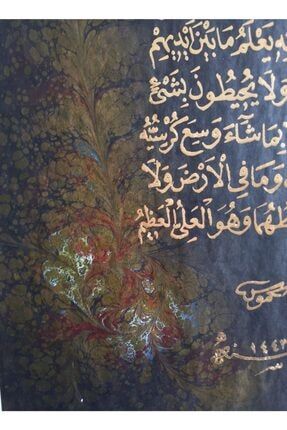 يَعْلَمُ مَا بَيْنَ اَيْدِيهِمْ
وَلَا يُحِيطُونَ بِشَىْءٍ
بِمَا شَٓاءَ وَسِعَ كُرْسِيُّهُ
وَمَا فِي الْاَرْضَ وَلَا
وَهُوَ الْعَلِيُّ الْعَظِيمُ
١٤٤٣